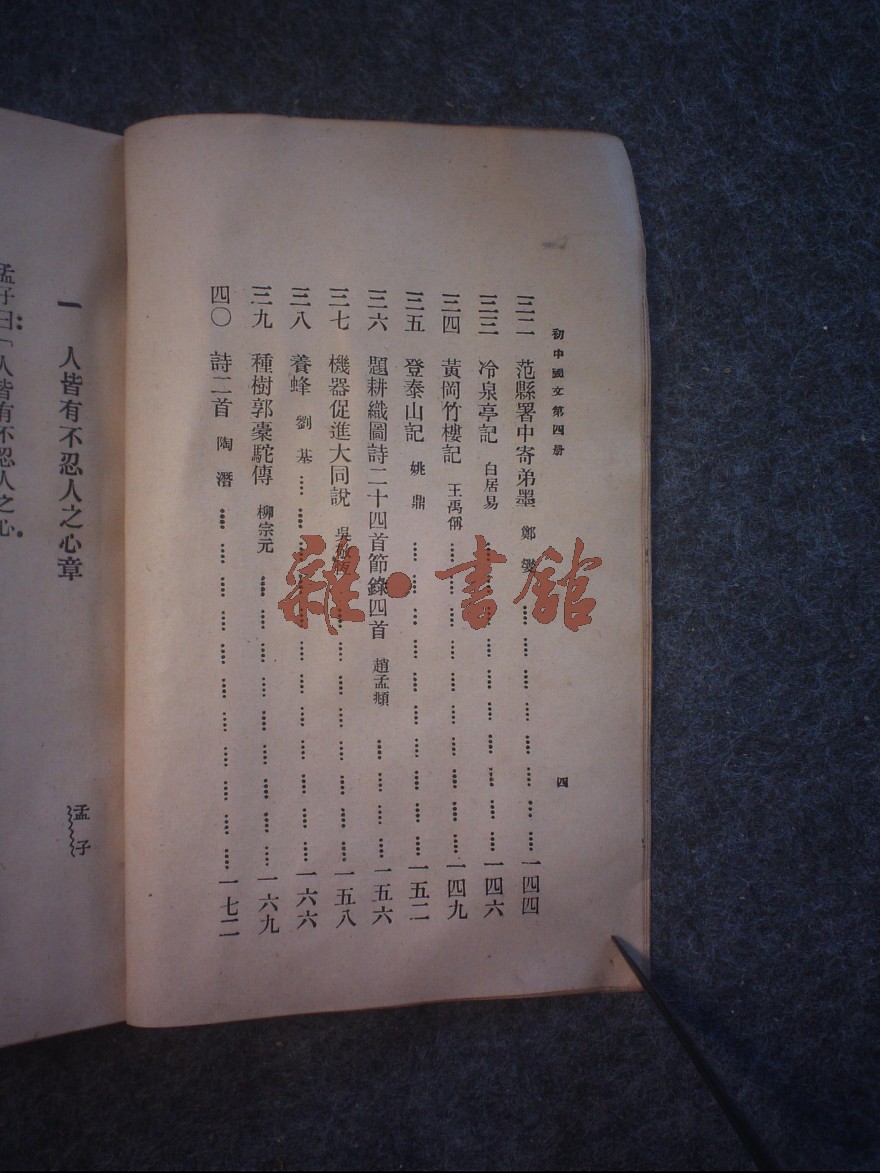 初中國文第四册
四
三二 范縣署中寄弟墨 鄭燮 一四四
三三 冷泉亭記 白居易 一四六
三四 黃岡竹樓記 王禹偁 一四九
三五 登泰山記 姚鼎 一五二
三六 題耕織圖詩二十四首節錄四首 趙孟頫 一五六
三七 機器促進大同說 吳敬恆 一五八
三八 養蜂 劉基 一六六
三九 種樹郭橐駝傳 柳宗元 一六九
四〇 詩二首 陶潛 一七二
一 人皆有不忍人之心章
孟子
孟子曰「人皆有不忍人之心。
雜·書館